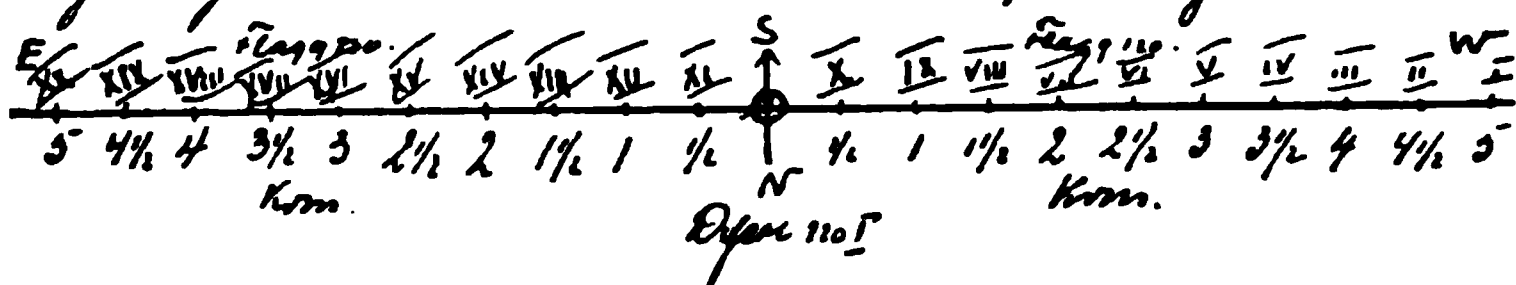 S
E XX XIX XVIII XVII XVI XV XIV XIII XII XI X IX VIII VII VI V IV III II W I
5 4½ 4 3½ 3 2½ 2 1½ 1 ½ ½ 1 1½ 2 2½ 3 3½ 4 4½ 5
Km. N Km.
no I